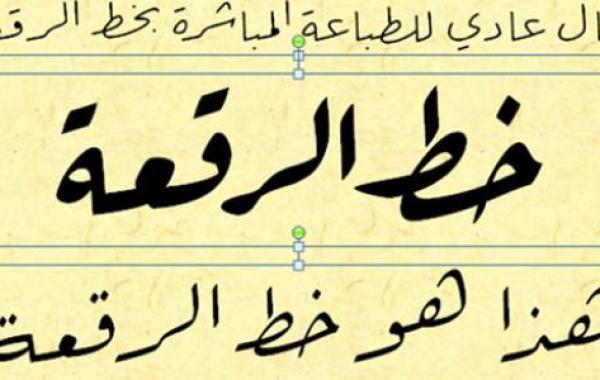 عادي للطباعة المباشرة بخط
خط الرقعة
هذا هو خط الرقعة